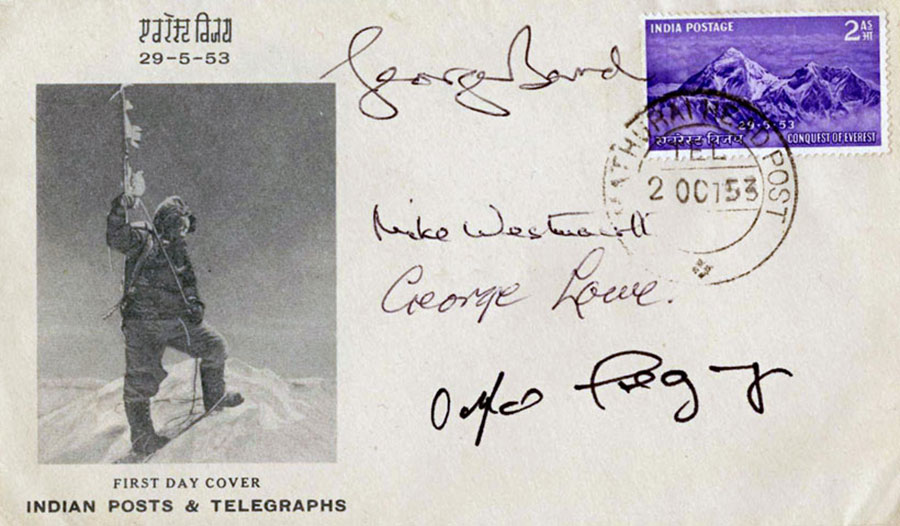 एवरेस्ट विजय
29-5-53
George Band
INDIA POSTAGE
2 AS
आ
29-5-53
एवरेस्ट विजय CONQUEST OF EVEREST
HEAD POST
TEL
2 OCT 53
Mike Westmacott
George Lowe.
FIRST DAY COVER
INDIAN POSTS & TELEGRAPHS